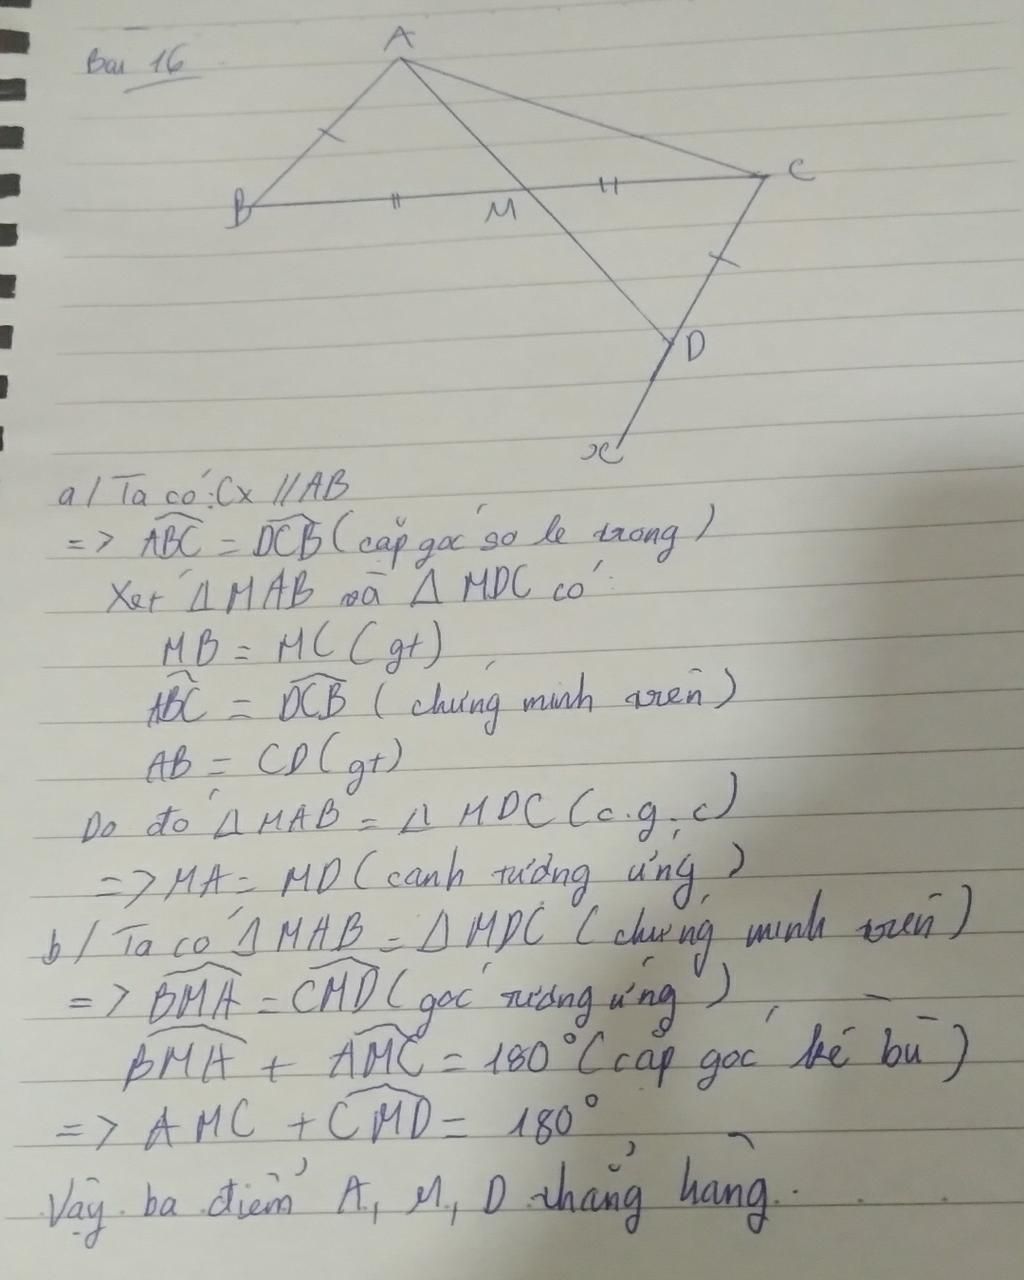 Bài 16
A
B
M
C
D
x
a/ Ta có: Cx // AB
=> ABC = DCB (cặp góc so le trong)
Xét ΔMAB và ΔMDC có:
MB = MC (gt)
ABC = DCB (chứng minh trên)
AB = CD (gt)
Do đó ΔMAB = ΔMDC (c.g.c)
=> MA = MD (cạnh tương ứng)
b/ Ta có ΔMAB = ΔMDC (chứng minh trên)
=> BMA = CMD (góc tương ứng)
BMA + AMC = 180° (cặp góc kề bù)
=> AMC + CMD = 180°
Vậy ba điểm A, M, D thẳng hàng.